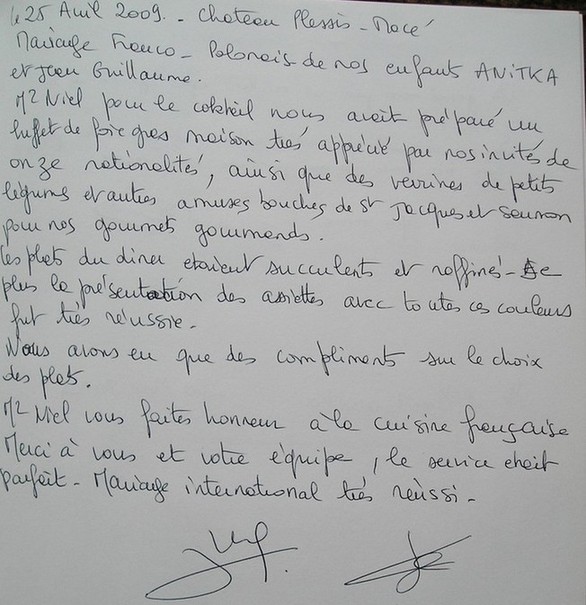 le 25 Avril 2009. - Chateau Plessis - Macé
Mariage Franco - Polonais de nos enfants ANITKA
et Jean Guillaume.
Mr Niel pour le cokteil nous avait préparé un
buffet de foie gras maison très apprécié par nos invités de
onze nationalités, ainsi que des verrines de petits
légums et autres amuses bouches de St Jacques et saumon
pour nos gourmets gourmands.
les plats du diner etaient succulents et raffinés - De
plus la présentation des assiettes avec toutes ces couleurs
fut très réussie.
Nous avons eu que des compliments sur le choix
des plats.
Mr Niel vous faites honneur à la cuisine française
Merci à vous et votre équipe, le service etait
parfait - Mariage international très réussi -